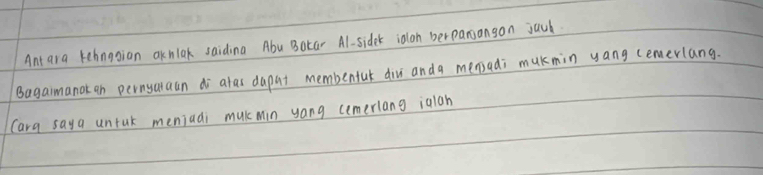 Antara kehnggian akhlak saidina Abu Bakar Al-sidek ialah berpandangan jauh.
Bagaimanakah pernyataan di atas dapat membentuk diri anda menjadi mukmin yang cemerlang.
Cara saya untuk menjadi mukmin yang cemerlang ialah